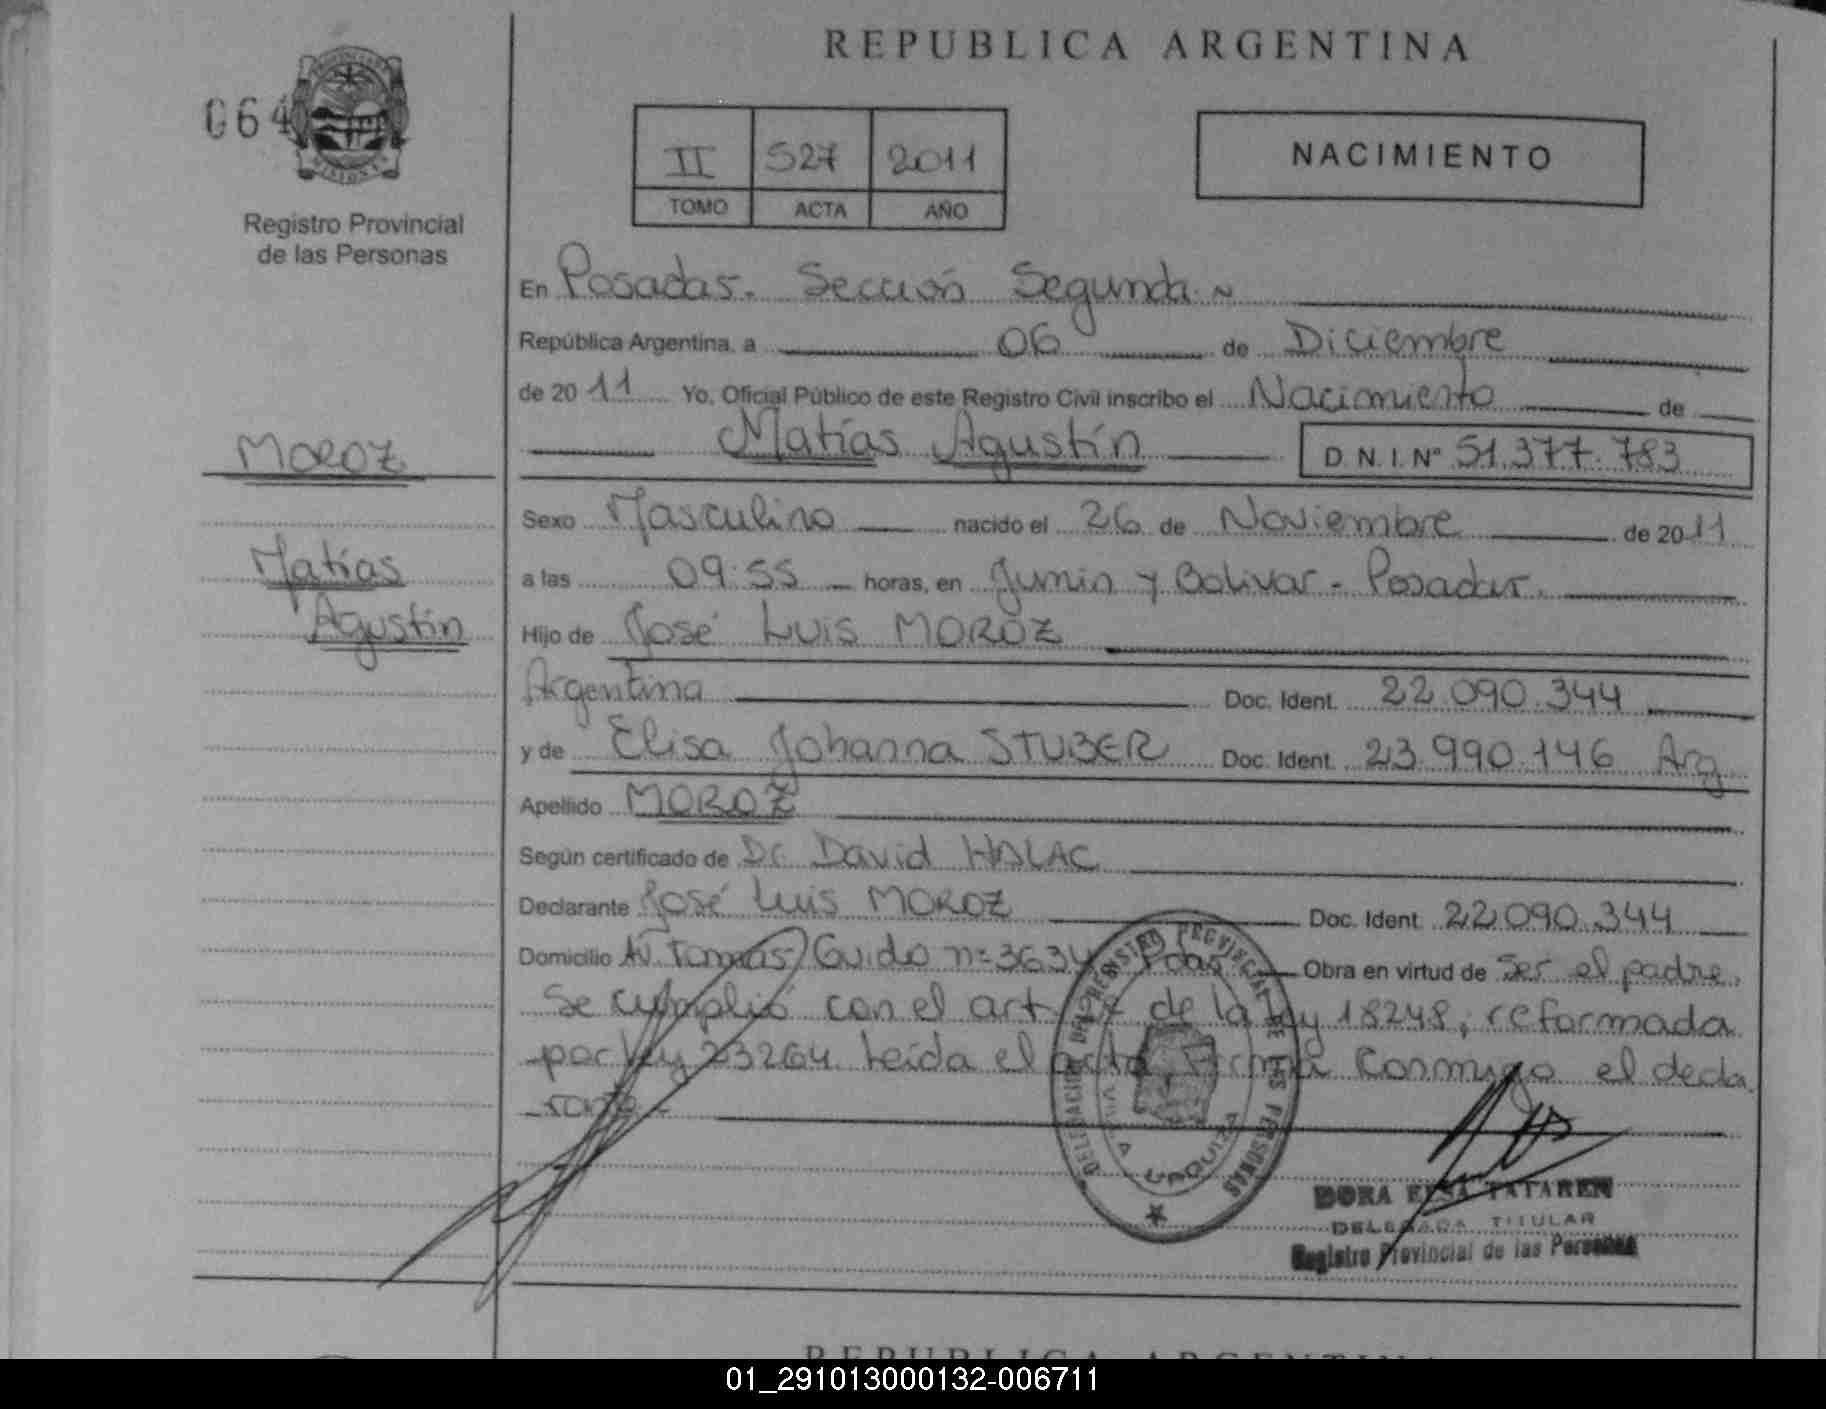 REPUBLICA ARGENTINA
064
MISIONES
Registro Provincial
de las Personas
II 527 2011
TOMO ACTA AÑO
NACIMIENTO
En Posadas. Sección Segunda
República Argentina, a 06 de Diciembre
de 2011 Yo, Oficial Público de este Registro Civil inscribo el Nacimiento de
Matías Agustín D.N.I. Nº 51.377.783
MOROZ
Matías
Agustín
Sexo Masculino nacido el 26 de Noviembre de 2011
a las 09:55 horas, en Junin y Bolivar - Posadas.
Hijo de José Luis MOROZ
Argentina Doc. Ident. 22.090.344
y de Elisa Johanna STUBER Doc. Ident. 23.990.146 Arg
Apellido MOROZ
Según certificado de Dr David HALAC
Declarante José Luis MOROZ Doc. Ident. 22.090.344
Domicilio Av. Tomás Guido nº 3634 Pdas Obra en virtud de Ser el padre.
Se cumplió con el art de la ley 18248, reformada
por ley 23264. Leida el acta Firma Conmigo el decla
rante -
DELEGACION DEL REGISTRO PROVINCIAL DE LAS PERSONAS
VILLA URQUIZA
DORA ELSA TATAREN
DELEGADA TITULAR
Registro Provincial de las Personas
REPUBLICA ARGENTINA
01_291013000132-006711